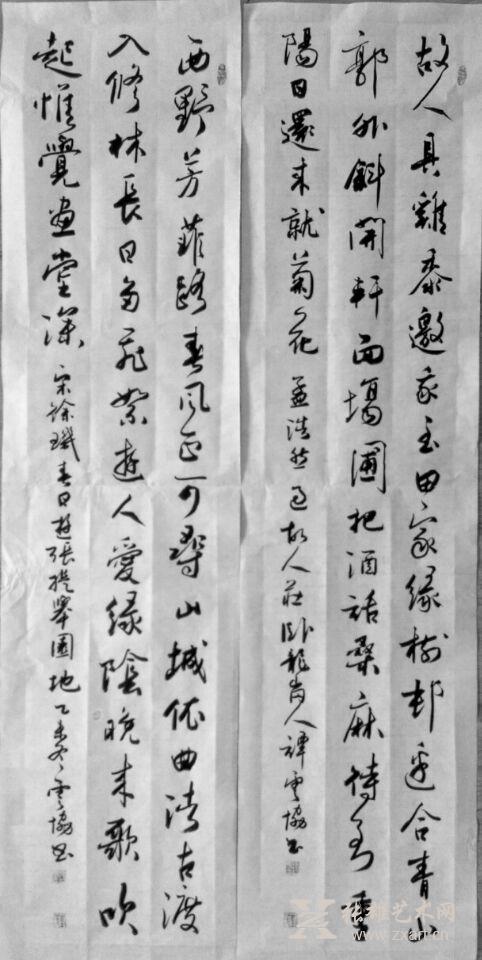 故人具雞黍邀我至田家綠樹邨邊合青山
郭外斜開軒面場圃把酒話桑麻待到重
陽日還來就菊花 孟浩然過故人莊臥龍崗人譚雲協書
西野芳菲路春風正可尋山城依曲渚古渡
入修林長日多飛絮遊人愛綠陰晚來歌吹
起惟覺畫堂深 宋徐璣春日遊張提舉園池 乙未冬雲協書
张雄艺术网
www.zxart.cn